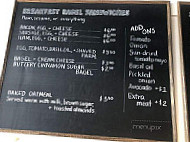 BREAKFAST BAGEL SANDWICHES
Plain, sesame, or everything
BACON, EGG + CHEESE
SAUSAGE, EGG + CHEESE
HAM, EGG + CHEESE
EGG, TOMATO, BASIL OIL, SHAVED PARM
BAGEL + CREAM CHEESE
BUTTERY CINNAMON SUGAR BAGEL
BAKED OATMEAL
Served warm with milk, brown sugar
+ toasted almonds
ADD ONS
Tomato
Onion
Sun dried tomato mayo
Basil oil
Pickled onion
Avocado +£1
Extra meat +2
menupix